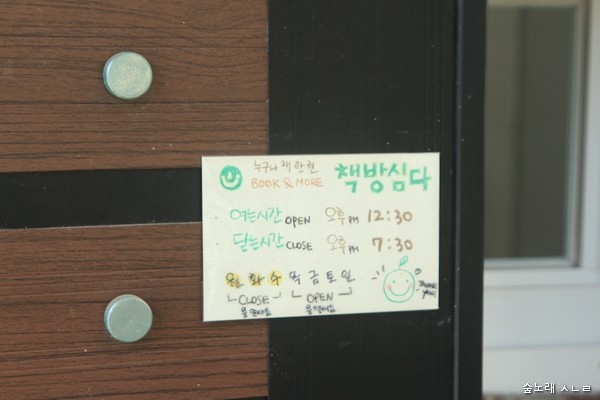 누구나 책 한 권
BOOK & MORE
책방심다
여는시간 OPEN 오후 PM 12:30
닫는시간 CLOSE 오후 PM 7:30
월 화 수 목 금 토 일
CLOSE OPEN
Thank you!
숲노래 ㅅㄴㄹ